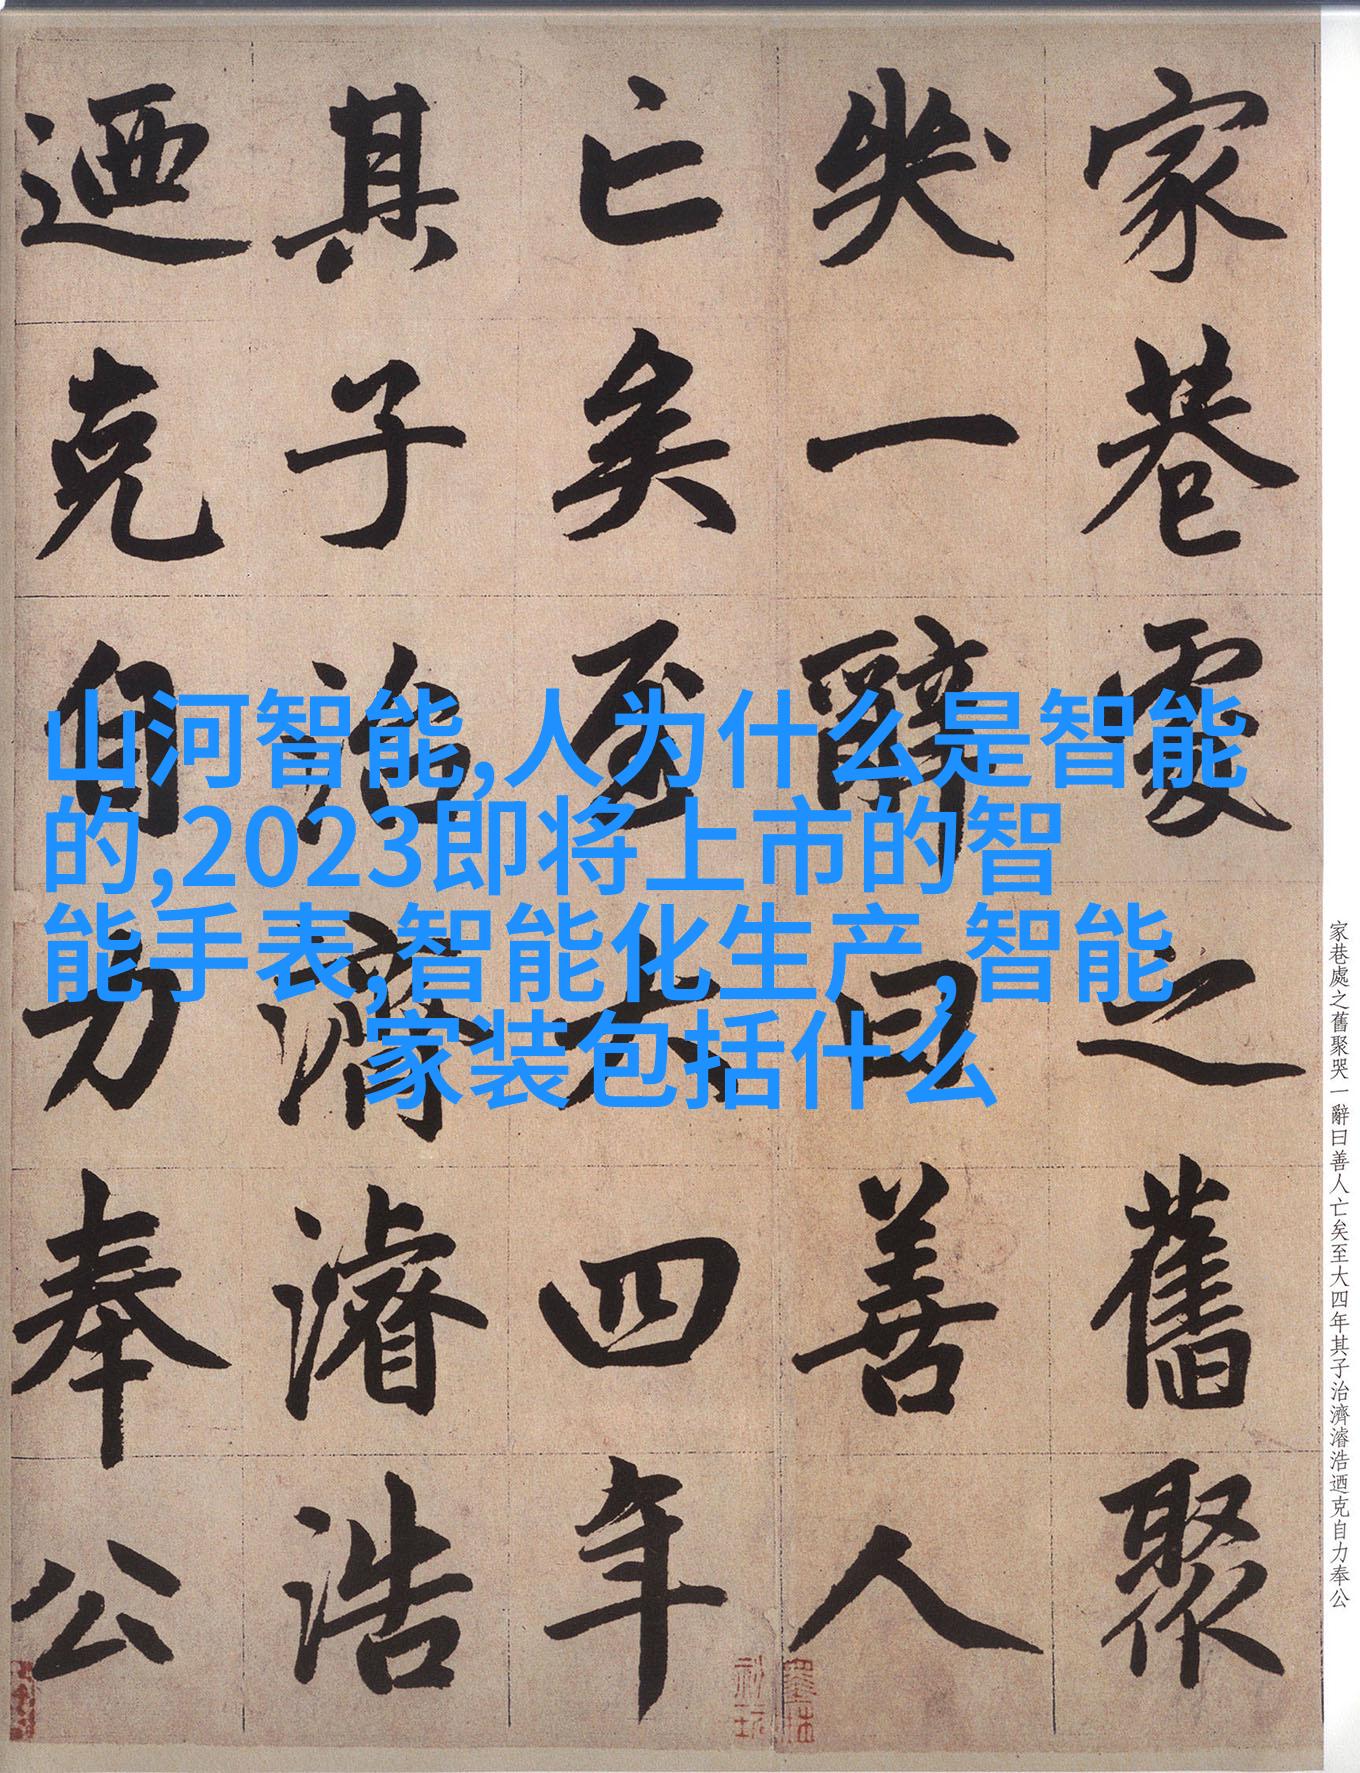 家巷處之舊聚
哭一辭曰善人
亡矣至大四年
其子治濟濬浩
迺克自力奉公
山河智能,人为什么是智能
的,2023即将上市的智
能手表,智能化生产,智能
家装包括什么
家巷處之舊聚哭一辭曰善人亡矣至大四年其子治濟濬浩迺克自力奉公